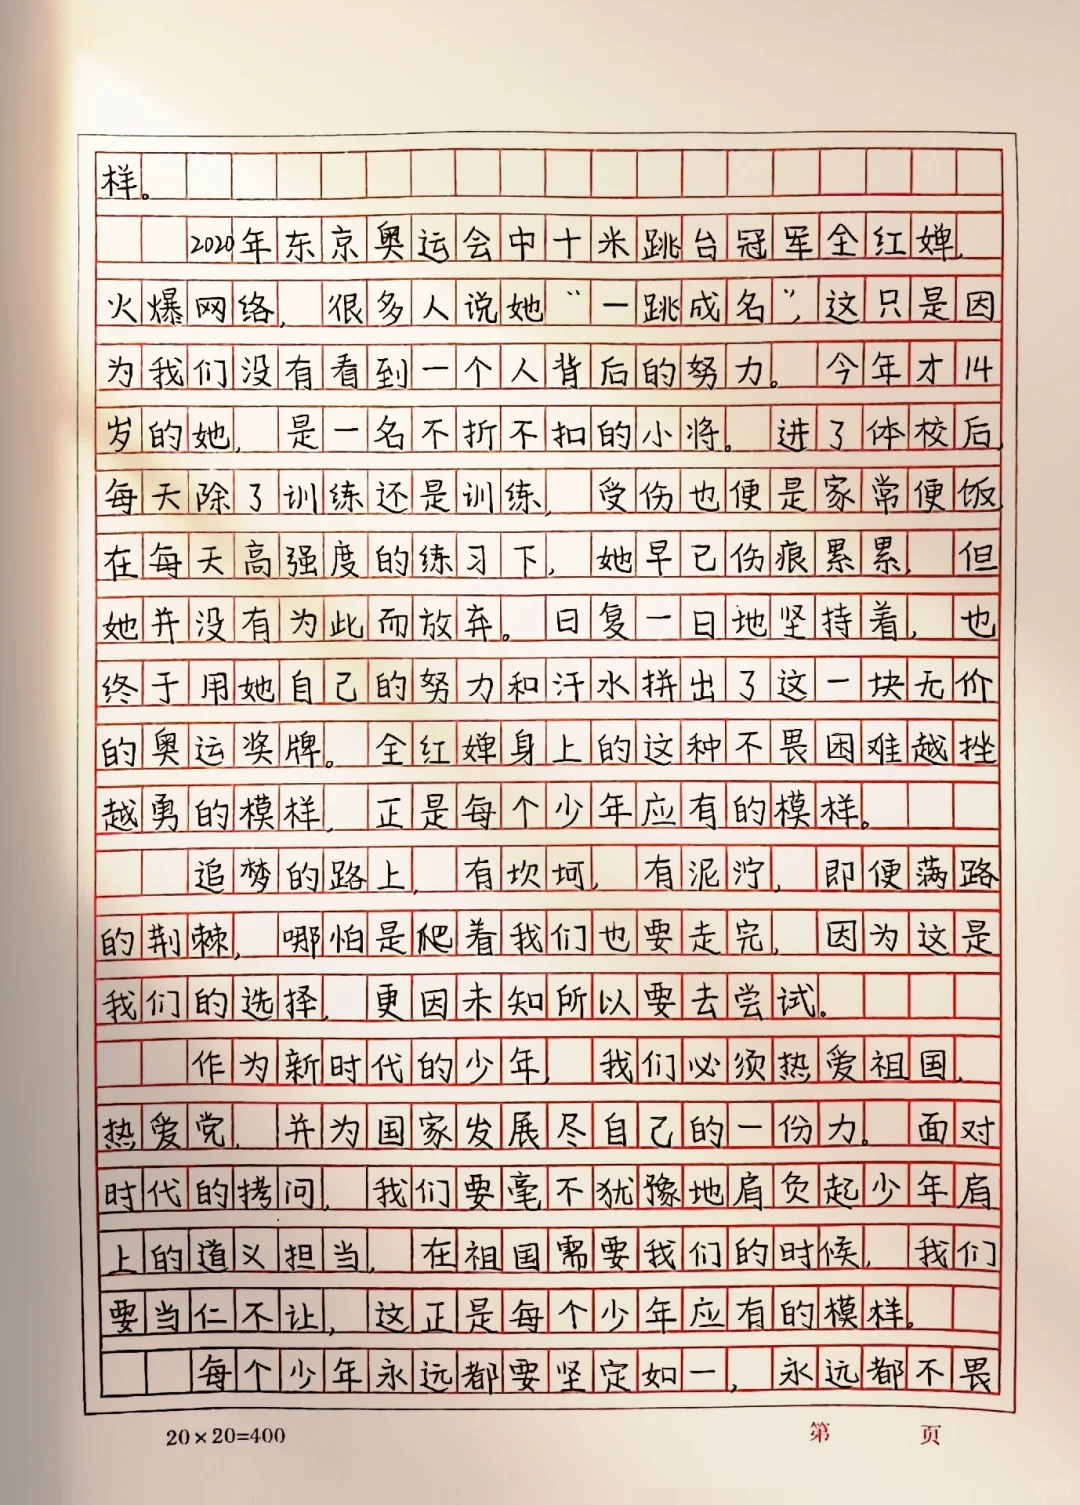 样。
2020年东京奥运会中十米跳台冠军全红婵,
火爆网络,很多人说她“一跳成名”,这只是因
为我们没有看到一个人背后的努力。今年才14
岁的她,是一名不折不扣的小将。进了体校后,
每天除了训练还是训练,受伤也便是家常便饭,
在每天高强度的练习下,她早已伤痕累累,但
她并没有为此而放弃。日复一日地坚持着,也
终于用她自己的努力和汗水拼出了这一块无价
的奥运奖牌。全红婵身上的这种不畏困难越挫
越勇的模样,正是每个少年应有的模样。
追梦的路上,有坎坷,有泥泞,即便满路
的荆棘,哪怕是爬着我们也要走完,因为这是
我们的选择,更因未知所以要去尝试。
作为新时代的少年,我们必须热爱祖国,
热爱党,并为国家发展尽自己的一份力。面对
时代的拷问,我们要毫不犹豫地肩负起少年肩
上的道义担当,在祖国需要我们的时候,我们
要当仁不让,这正是每个少年应有的模样。
每个少年永远都要坚定如一,永远都不畏
20×20=400
第 页